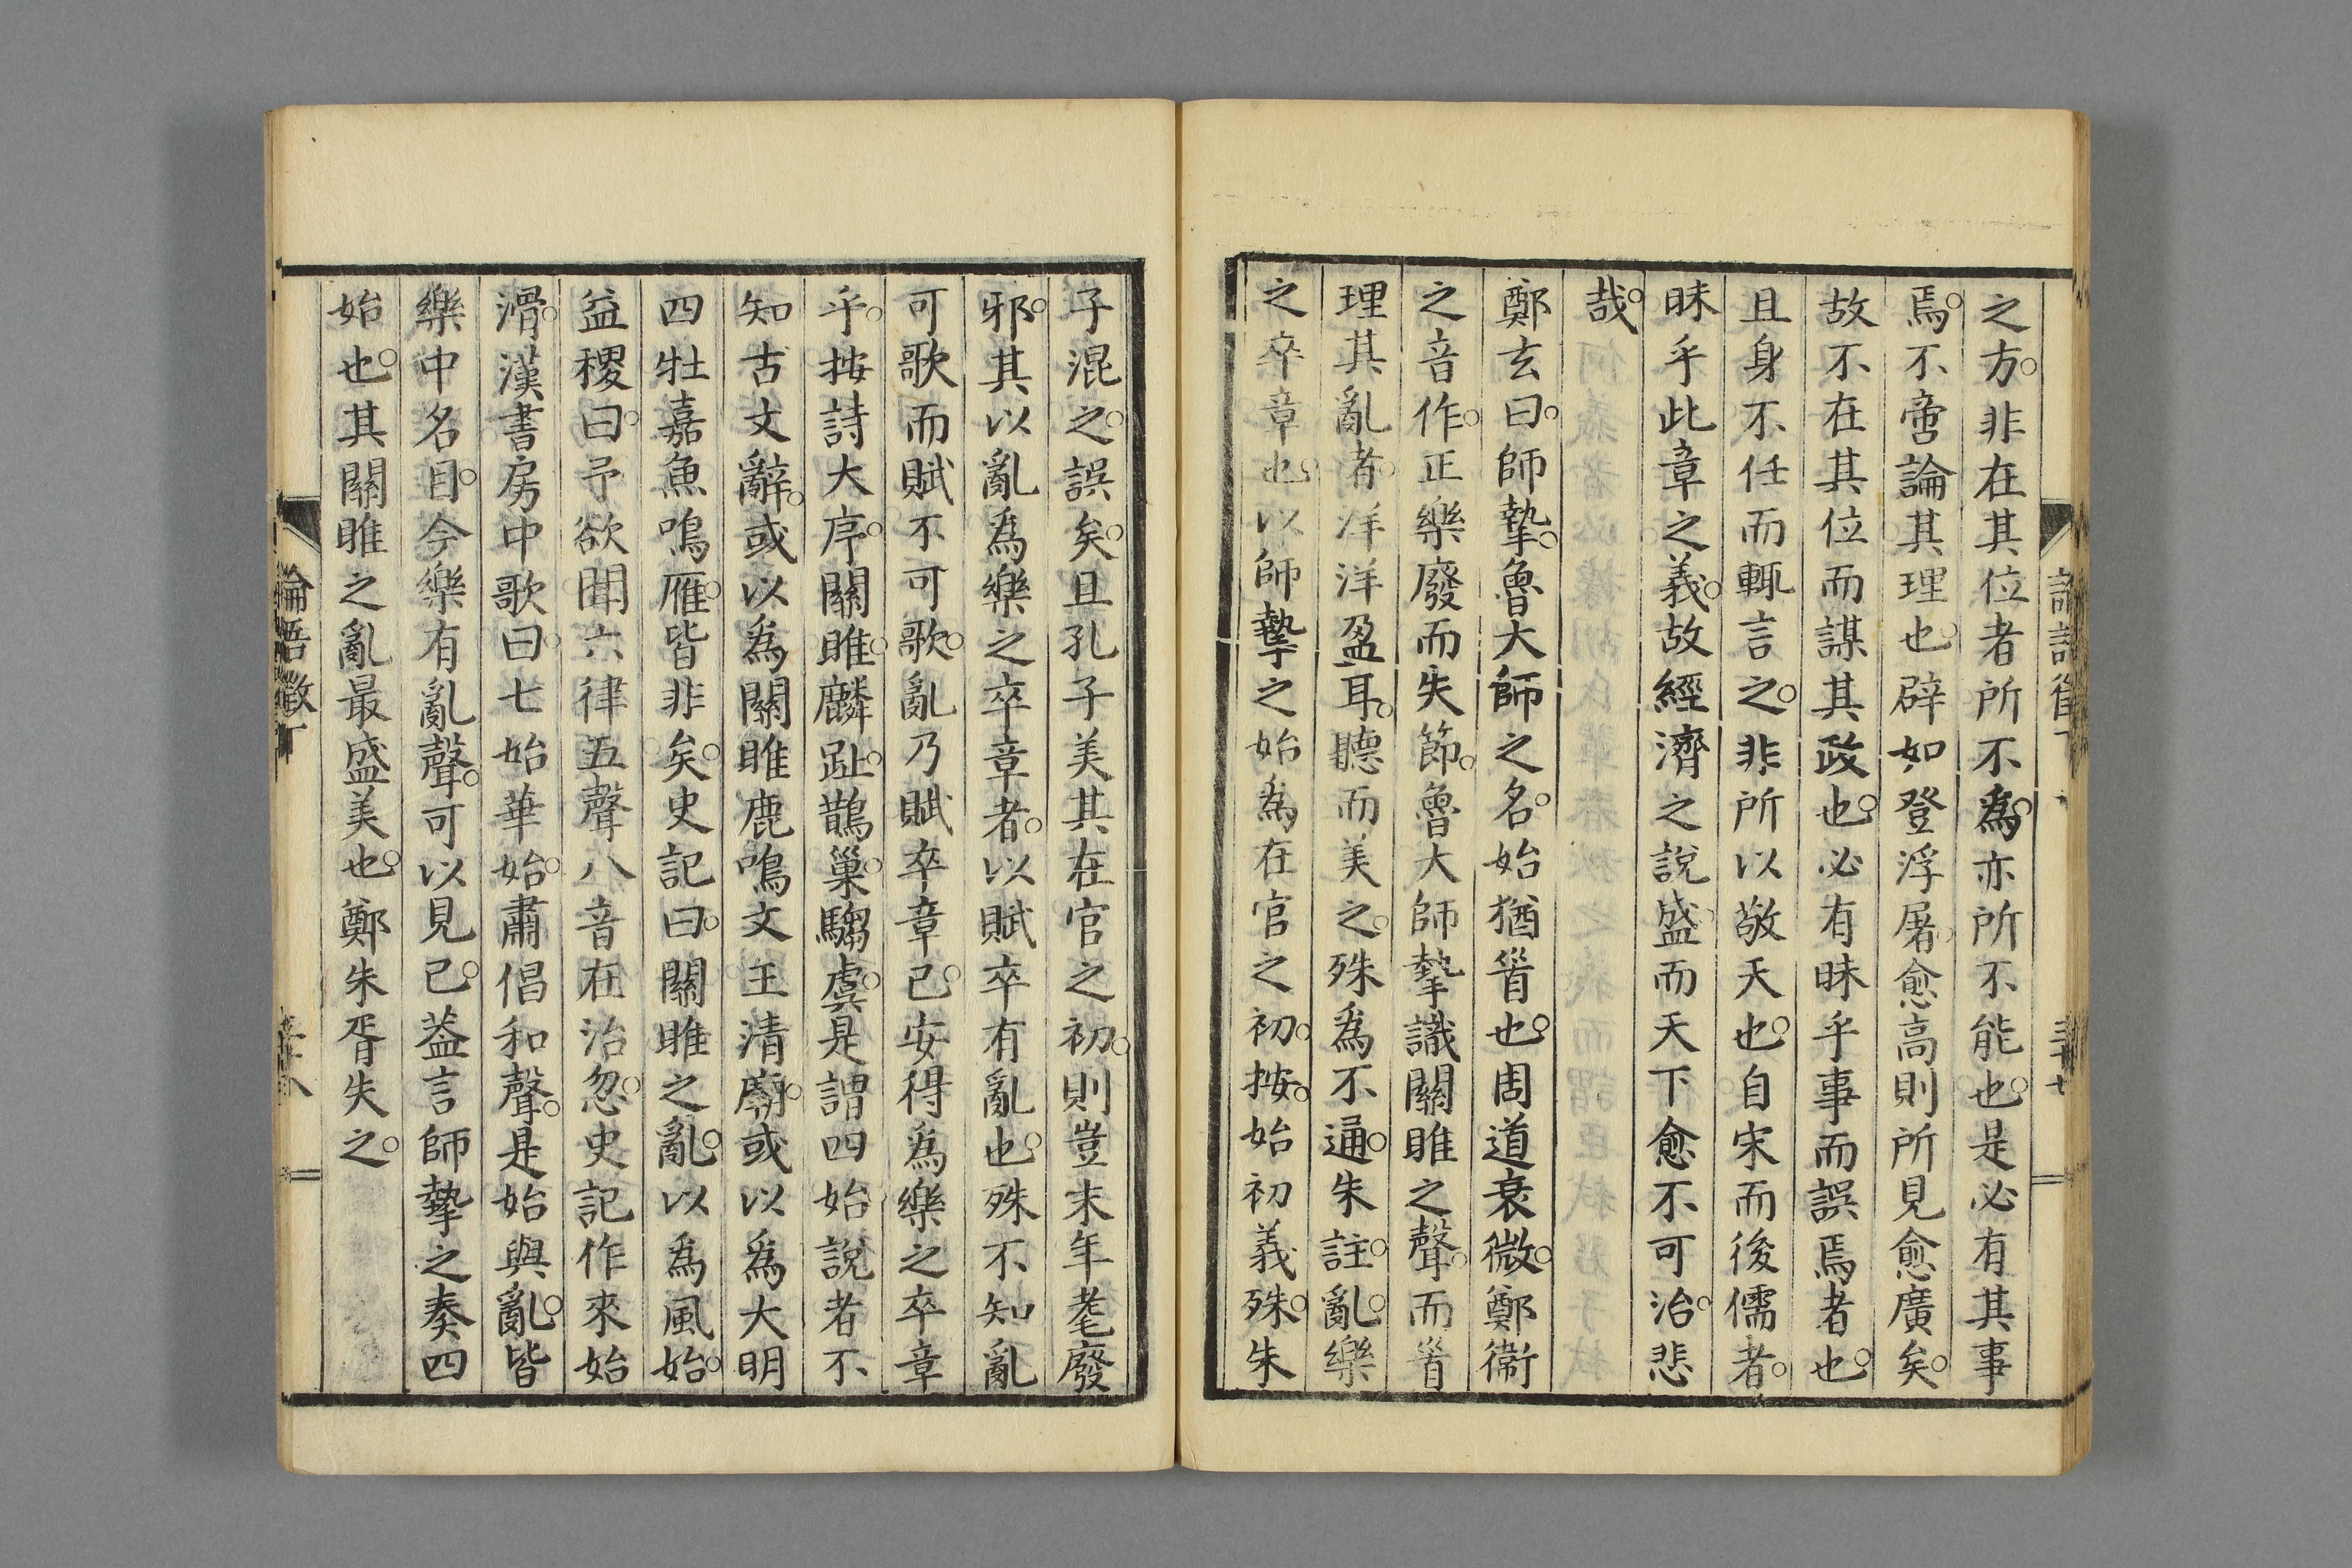 之方。非在其位者所不爲。亦所不能也。是必有其事
焉。不啻論其理也。辟如登浮屠。愈高則所見愈廣矣。
故不在其位而謀其政也。必有昧乎事而誤焉者也。
且身不任而輒言之。非所以敬天也。自宋而後儒者。
昧乎此章之義。故經濟之說盛。而天下愈不可治。悲
哉。
鄭玄曰。師摯。魯大師之名。始猶首也。周道衰微。鄭衞
之音作。正樂廢而失節。魯大師摯識關雎之聲。而首
理其亂者。洋洋盈耳。聽而美之。殊爲不通。朱註。亂。樂
之卒章也。以師摯之始爲在官之初。按。始初義殊。朱
子混之。誤矣。且孔子美其在官之初。則豈末年耄廢
邪。其以亂爲樂之卒章者。以賦卒有亂也。殊不知亂
可歌而賦不可歌。亂乃賦卒章已。安得爲樂之卒章
乎。按詩大序。關雎。麟趾。鵲巢。騶虞。是謂四始。說者不
知古文辭。或以爲關雎鹿鳴文王清廟。或以爲大明
四牡嘉魚鳴雁。皆非矣。史記曰。關雎之亂。以爲風始。
益稷曰。予欲聞六律五聲八音在治忽。史記作來始
滑。漢書房中歌曰。七始華始。肅倡和聲。是始與亂。皆
樂中名目。今樂有亂聲。可以見已。葢言師摯之奏四
始也。其關雎之亂最盛美也。鄭朱胥失之。
論語徵丁